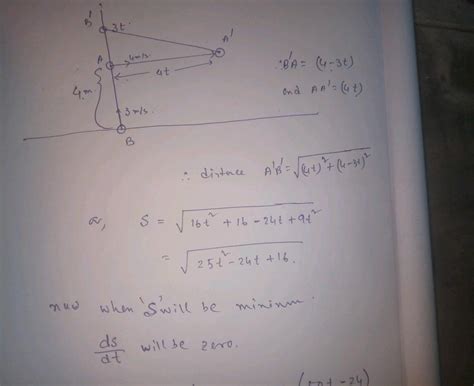 B' 3t
A'
A 4m/s.
4t
4m
3m/s.
B
∵ B'A = (4-3t)
and AA' = (4t)
∴ distance A'B' = √(4t)² + (4-3t)²
or, S = √16t² + 16 - 24t + 9t²
= √25t² - 24t + 16.
now when 'S' will be minimum.
ds/dt will be zero.
(50t - 24)